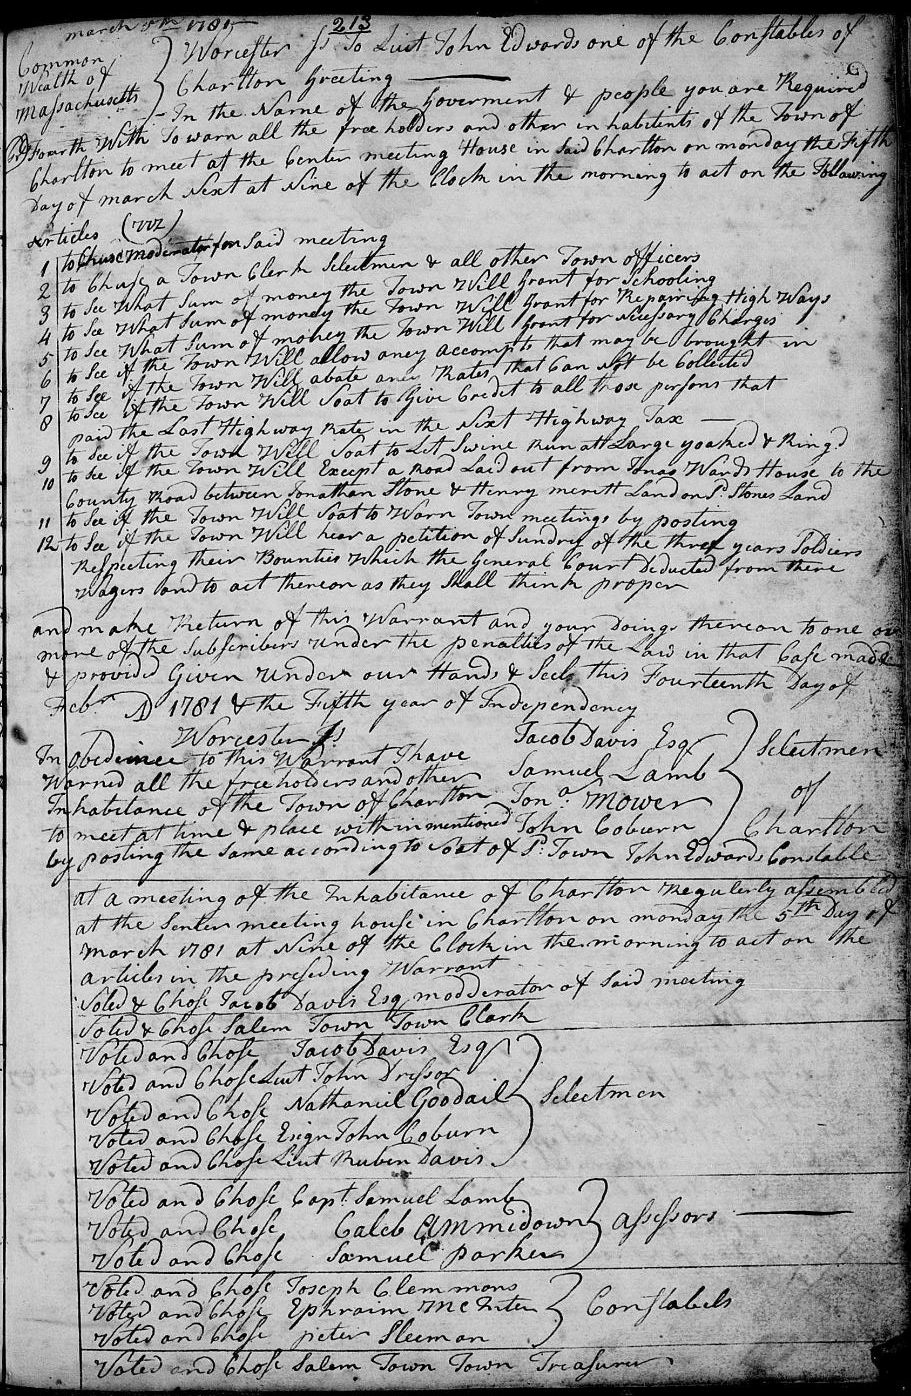 march 5th 1781
213
Common Wealth of Massachusetts } Worcester ss To Liut John Edwards one of the Constables of
Charlton Greeting
In the Name of the Goverment & people you are Required
Fourth With To warn all the free holders and other in habitents of the Town of
Charlton to meet at the Center meeting House in said Charlton on monday the Fifth
Day of march Next at Nine of the Clock in the morning to act on the Following
Articles (viz)
1 to Chuse moderator for Said meeting
2 to Chuse a Town Clerk Selectmen & all other Town officers
3 to See What Sum of money the Town Will Grant for Schooling
4 to See What Sum of money the Town Will Grant for Repairing High Ways
5 to See What Sum of money the Town Will Grant for Nessary Charges
6 to See if the Town Will allow aney accompts that may be brought in
7 to See if the Town Will abate aney Rates that Can Not be Collected
8 to See if the Town Will Voat to Give Credet to all those persons that
paid the Last Highway Rate in the Next Highway Tax
9 to See if the Town Will Voat to Let Swine Run att Large yoaked & Ring'd
10 to See if the Town Will Except a Road Laid out from Jonas Wards House to the
County Road between Jonathan Stone & Henry merritt Land on Sd Stones Land
11 to See if the Town Will Voat to Warn Town meetings by posting
12 to See if the Town Will hear a petition of Sundrey of the three years Soldiers
Respecting their Bounties Which the General Court Deducted from there
Wagers and to act thereon as they Shall think proper
and make Return of this Warrant and your Doings thereon to one or
more of the Subscribers under the penalties of the Law in that Case made
& provided Given under our Hands & Seels this Fourteenth Day of
Febr AD 1781 & the Fifth year of Independency
Worcester ss
In obedience to this Warrant I have
Warned all the freeholders and other
Inhabitance of the Town of Charlton
to meet at time & place with in mentioned
by posting the same according to Voat of Sd Town John Edwards Constable
Jacob Davis Esq
Samuel Lamb
Jona Mower
John Coburn
} Selectmen of Charlton
at a meeting of the Inhabitance of Charlton Regulerly assembled
at the Senter meeting house in Charlton on monday the 5th Day of
march 1781 at Nine of the Clock in the morning to act on the
articles in the preseding Warrant
Voted & Chose Jacob Davis Esq modderator of Said meeting
Voted & Chose Salem Town Town Clark
Voted and Chose Jacob Davis Esq
Voted and Chose Liut John Dresser
Voted and Chose Nathaniel Goodail
Voted and Chose Esign John Coburn
Voted and Chose Liut Ruben Davis
} Selectmen
Voted and Chose Capt Samuel Lamb
Voted and Chose Caleb Ammidown
Voted and Chose Samuel Parker
} assessors
Voted and Chose Joseph Clemmons
Voted and Chose Ephraim McInter
Voted and Chose pieter Sleeman
} Constabels
Voted and Chose Salem Town Town Treasurer